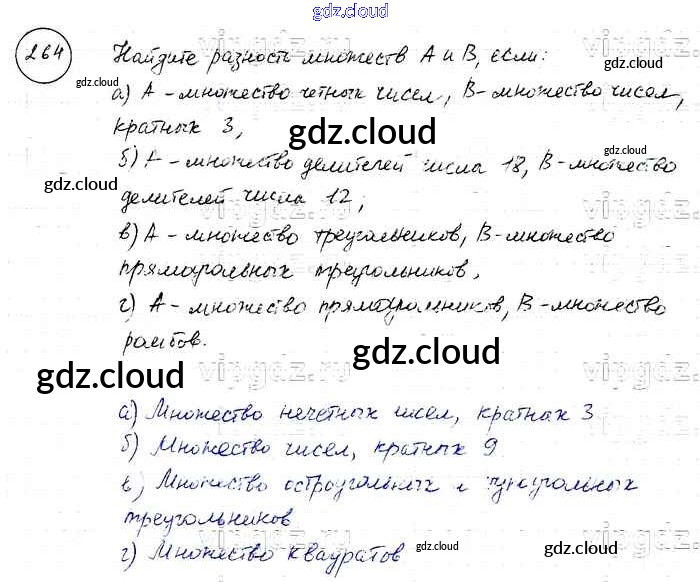 gdz.cloud
264 Найдите разность множеств А и В, если:
gdz.cloud
а) А - множество четных чисел, В - множество чисел,
gdz.cloud
кратных 3,
gdz.cloud
б) А - множество делителей числа 18, В - множество
gdz.cloud
делителей числа 12;
gdz.cloud
в) А - множество треугольников, В - множество
прямоугольных треугольников,
г) А - множество прямоугольников, В - множество
ромбов.
gdz.cloud
gdz.cloud
а) Множество нечетных чисел, кратных 3
б) Множество чисел, кратных 9
в) Множество остроугольных и тупоугольных
треугольников
г) Множество квадратов
gdz.cloud
gdz.cloud